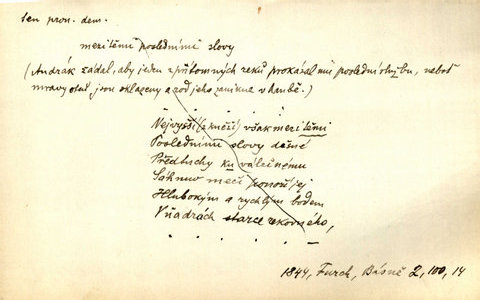 ten pron. dem.
mezi těmi posledními slovy
(Andrák žádal, aby jeden z přítomných reků prokázal mu poslední službu, neboť
mravy otců jsou oklazeny a rod jeho zanikne v hanbě.)
. . . . .
Nejvyšší (z kněží) však mezi těmi
Posledními slovy děsné
Předtuchy ku válečnému
Sáknuv meči ponoří jej
Hlubokým a rychlým bodem
V ňadrách starce rekovného,
. . . . . —
1844, Furch, Básně 2, 100, 14